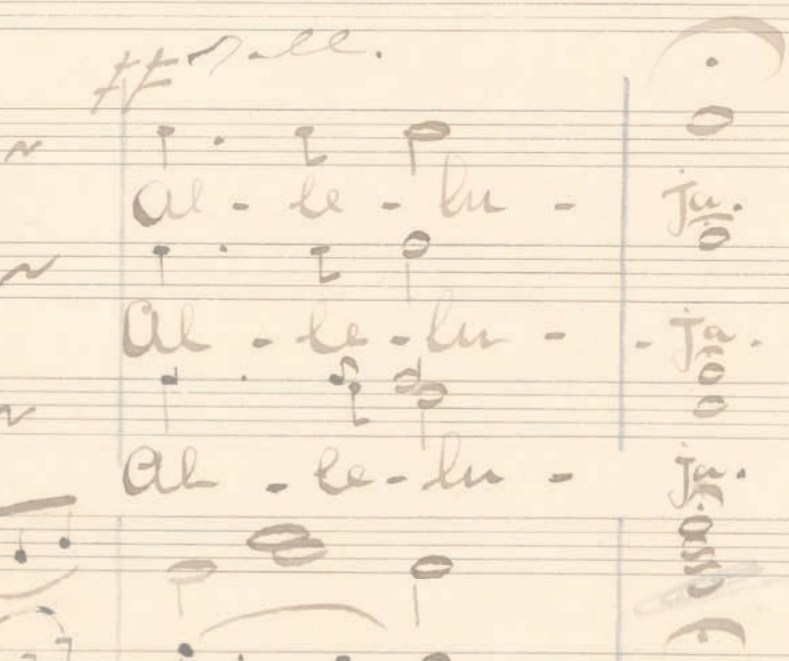 ff rall.
Al - le - lu - ja.
Al - le - lu - - ja.
Al - le - lu - ja.